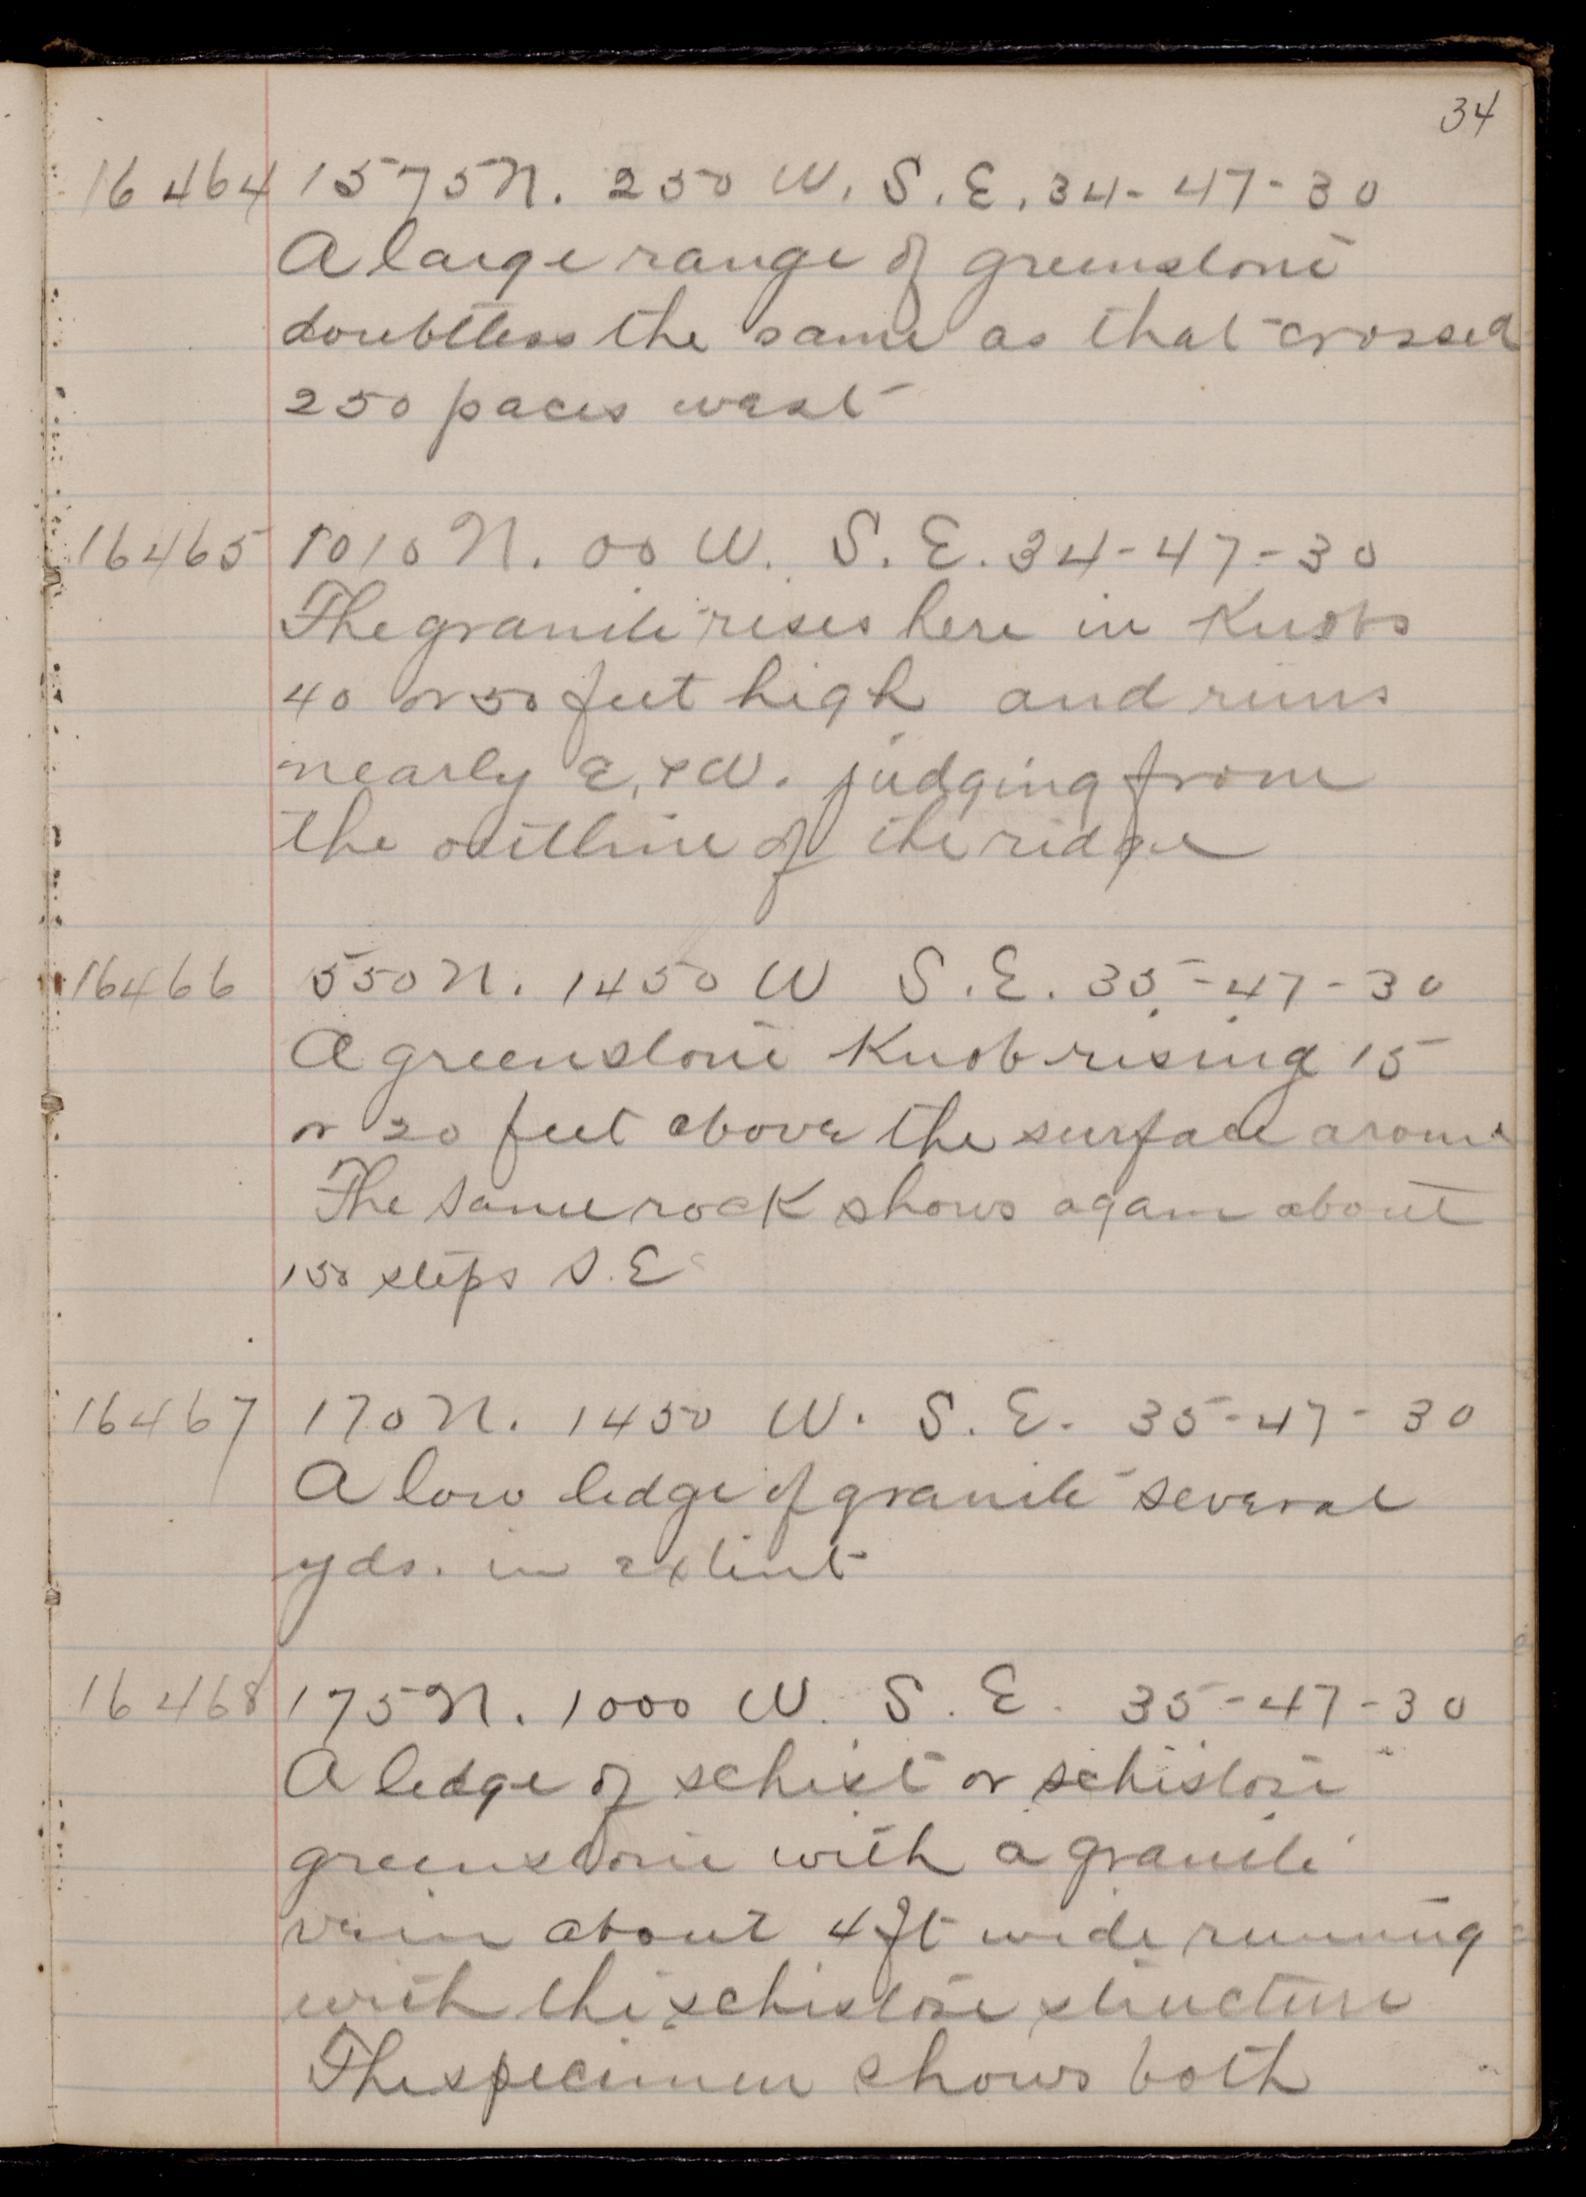 34
16464 1575 N. 250 W. S. E. 34-47-30
A large range of greenstone
doubtless the same as that crossed
250 paces west
16465 1010 N. 00 W. S. E. 34-47-30
The granite rises here in Knobs
40 or 50 feet high and runs
nearly E. & W. judging from
the outline of the ridge
16466 550 N. 1450 W S. E. 35-47-30
A greenstone Knob rising 15
or 20 feet above the surface around
The same rock shows again about
150 steps S. E
16467 170 N. 1450 W. S. E. 35-47-30
A low ledge of granite several
yds. in extent
16468 175 N. 1000 W. S. E. 35-47-30
A ledge of schist or schistose
greenstone with a granite
vein about 4 ft wide running
with the schistose structure
The specimen shows both